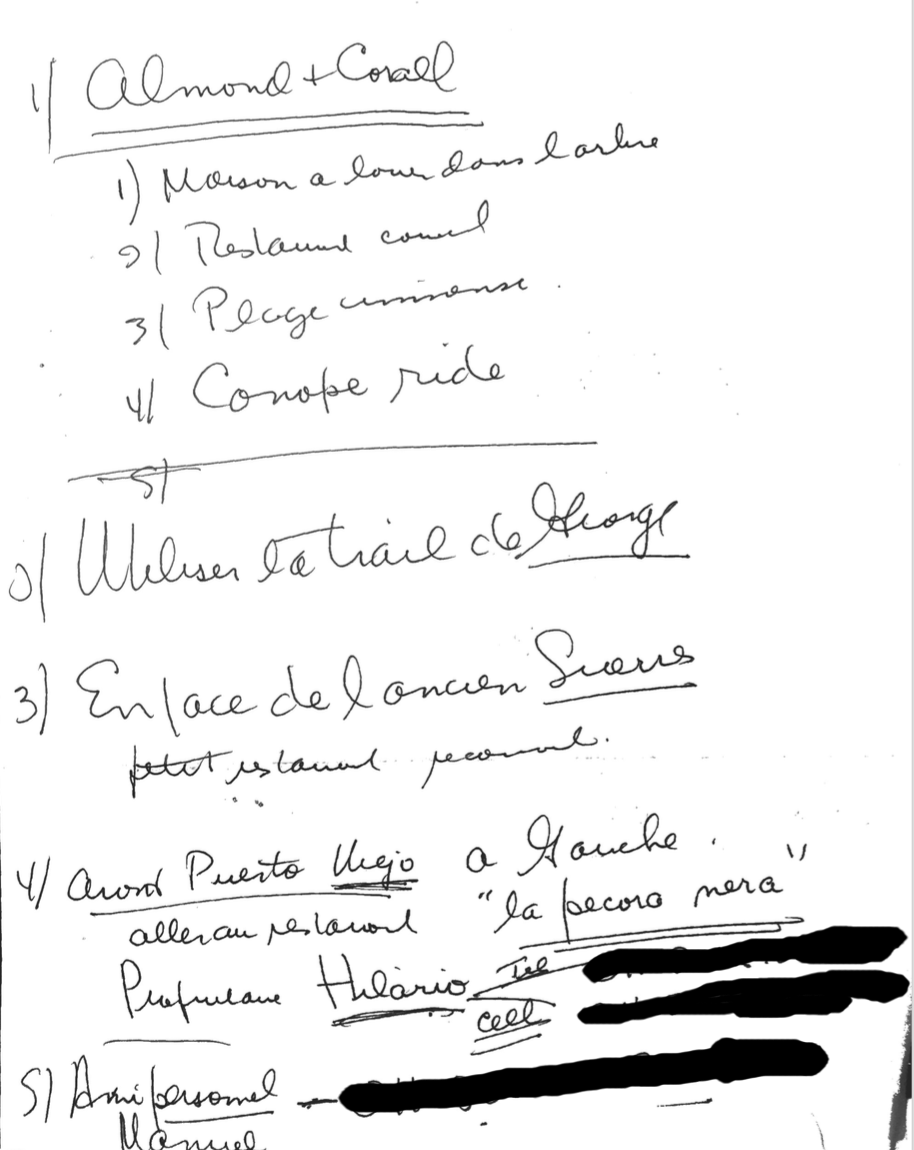 1) Almond + Corall
1) Maison a louer dans l'arbre
2) Restaurant
3) Plage immense.
4) Canope ride
5)
2) Utiliser la trail de George
3) En face de l'ancien Suerre
petit restaurant
4) avant Puerto Viejo a Gauche.
aller au restaurant "la pecora nera"
Propriétaire Hilario Tel
cell
5) Ami personnel -
Manuel